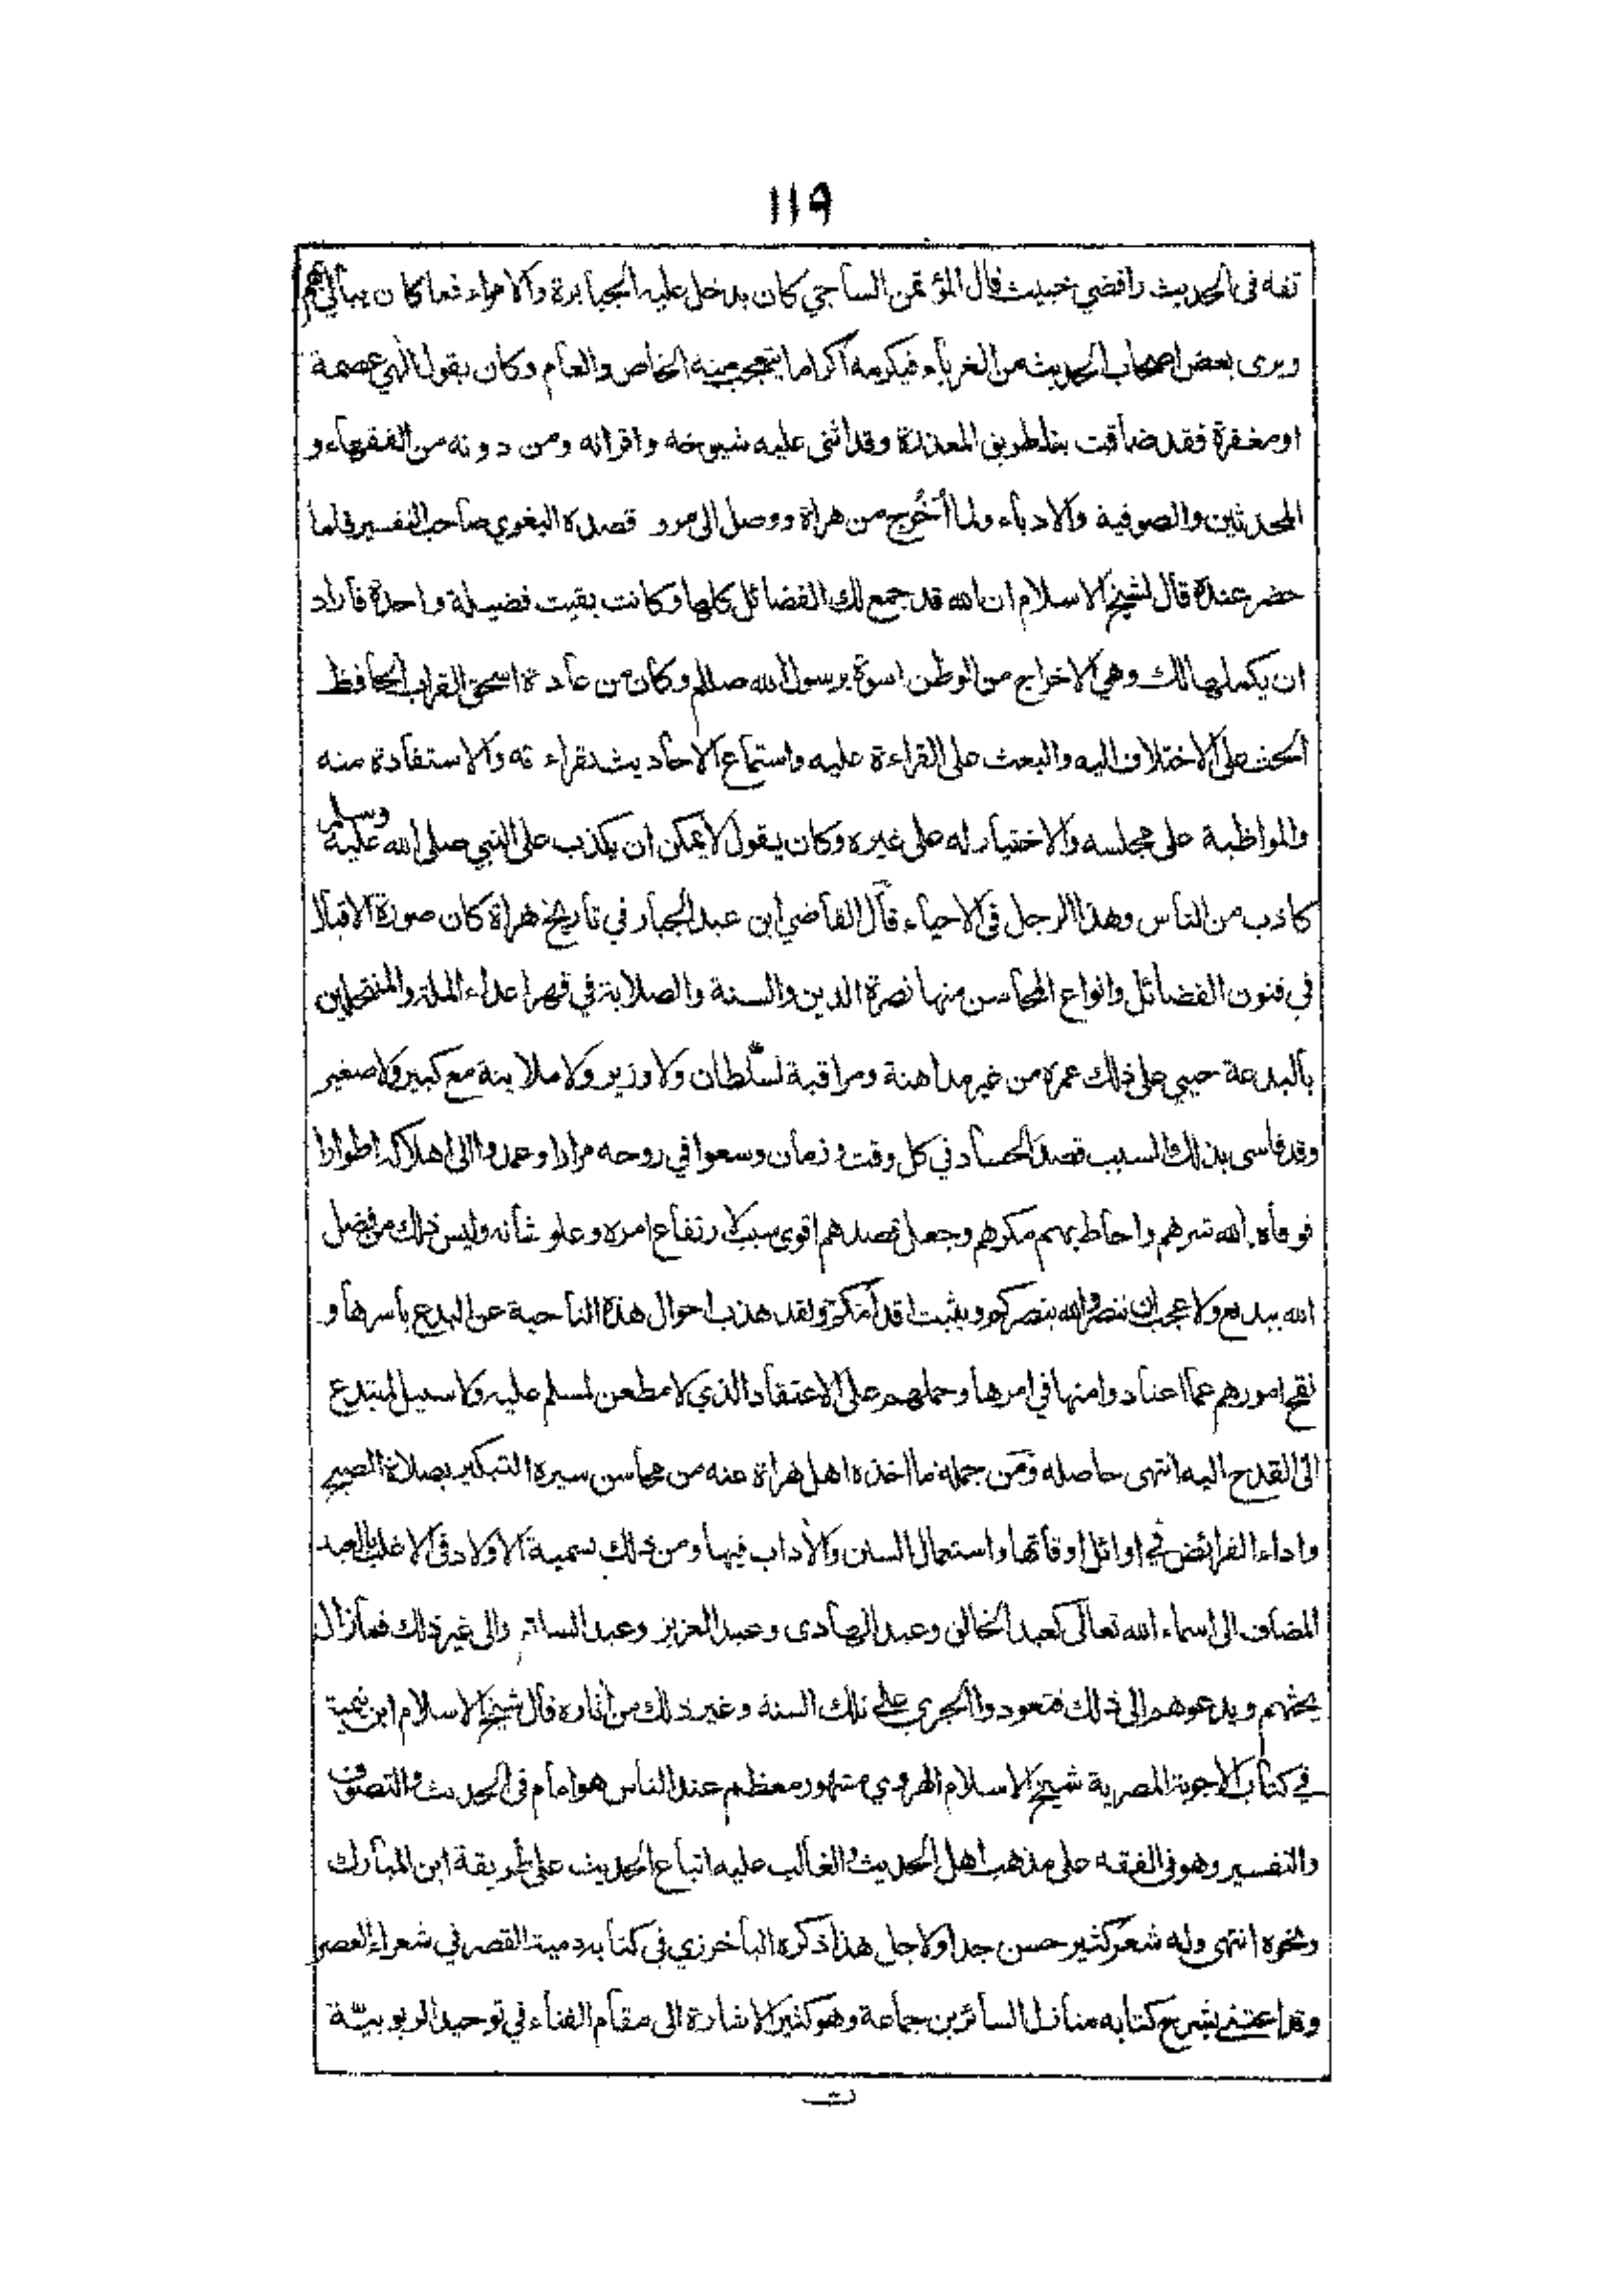 ١١٩
ثقة فى الحديث رافضي خبيث قال المؤتمن الساجي كان يدخل عليه الجبابرة والامراء فما كان يبالي بهم
ويرى بعض اصحاب الحديث من الغرباء فيكرمه اكراما يتعجب منه الخاص والعام وكان يقول الهي عصمة
او مغفرة فقد ضاقت بنا طريق المعذرة وقد اثنى عليه شيوخه واقرانه ومن دونه من الفقهاء و
المحدثين والصوفية والادباء ولما أُخرج من هراة ووصل الى مرو قصده البغوي صاحب التفسير فلما
حضر عنده قال لشيخ الاسلام ان الله قد جمع لك الفضائل كلها وكانت بقيت فضيلة واحدة فاراد
ان يكملها لك وهي الاخراج من الوطن اسوة برسول الله صللم وكان من عادة اسحق القراب الحافظ
الحث على الاختلاف اليه والبعث على القراءة عليه واستماع الاحاديث بقراءته والاستفادة منه
والمواظبة على مجلسه والاختيار له على غيره وكان يقول لا يمكن ان يكذب على النبي صلى الله عليه وسلم
كاذب من الناس وهذا الرجل فى الاحياء قال القاضي ابن عبد الجبار في تاريخ هراة كان صورة الاقبال
في فنون الفضائل وانواع المحاسن منها نصرة الدين والسنة والصلابة في قهر اعداء الملة والمنتحلين
بالبدعة حيي على ذلك عمره من غير مداهنة ومراقبة لسلطان ولا وزير ولا ملاينة مع كبير ولا صغير
وقد قاسى بذلك السبب قصد الحساد في كل وقت وزمان وسعوا في روحه مرارا وعمدوا الى اهلاكه اطوارا
فوقاه الله شرهم واحاط بهم مكرهم وجعل قصدهم اقوى سبب لارتفاع امره وعلو شأنه وليس ذلك من فضل
الله ببديع ولا عجب ان تنصروا الله ينصركم ويثبت اقدامكم ولقد هذب احوال هذه الناحية عن البدع بأسرها و
نقح امورهم عما اعتادوا منها في امرها وحملهم على الاعتقاد الذي لا مطعن لمسلم عليه ولا سبيل لمبتدع
الى القدح اليه انتهى حاصله ومن جملة ما اخذه اهل هراة عنه من محاسن سيره التبكير بصلاة الصبح
واداء الفرائض في اوائل اوقاتها واستعمال السنن والأداب فيها ومن ذلك تسمية الاولاد فى الاغلب بالعبد
المضاف الى اسماء الله تعالى كعبد الخالق وعبد الهادى وعبد العزيز وعبد السلام والى غير ذلك فما زال
يحثهم ويدعوهم الى ذلك فتعودوا الجري على تلك السنة وغير ذلك من أثاره قال شيخ الاسلام ابن تيمية
في كتاب الاجوبة المصرية شيخ الاسلام الهروي مشهور معظم عند الناس هو امام فى الحديث والتصوف
والتفسير وهو فى الفقه على مذهب اهل الحديث والغالب عليه اتباع الحديث على طريقة ابن المبارك
ونحوه انتهى وله شعر كثير حسن جدا ولاجل هذا ذكره الباخرزي في كتابه دمية القصر في شعراء العصر
وقد اعتنى بشرح كتابه منازل السائرين جماعة وهو كثير الاشارة الى مقام الفناء في توحيد الربوبيّة
ت